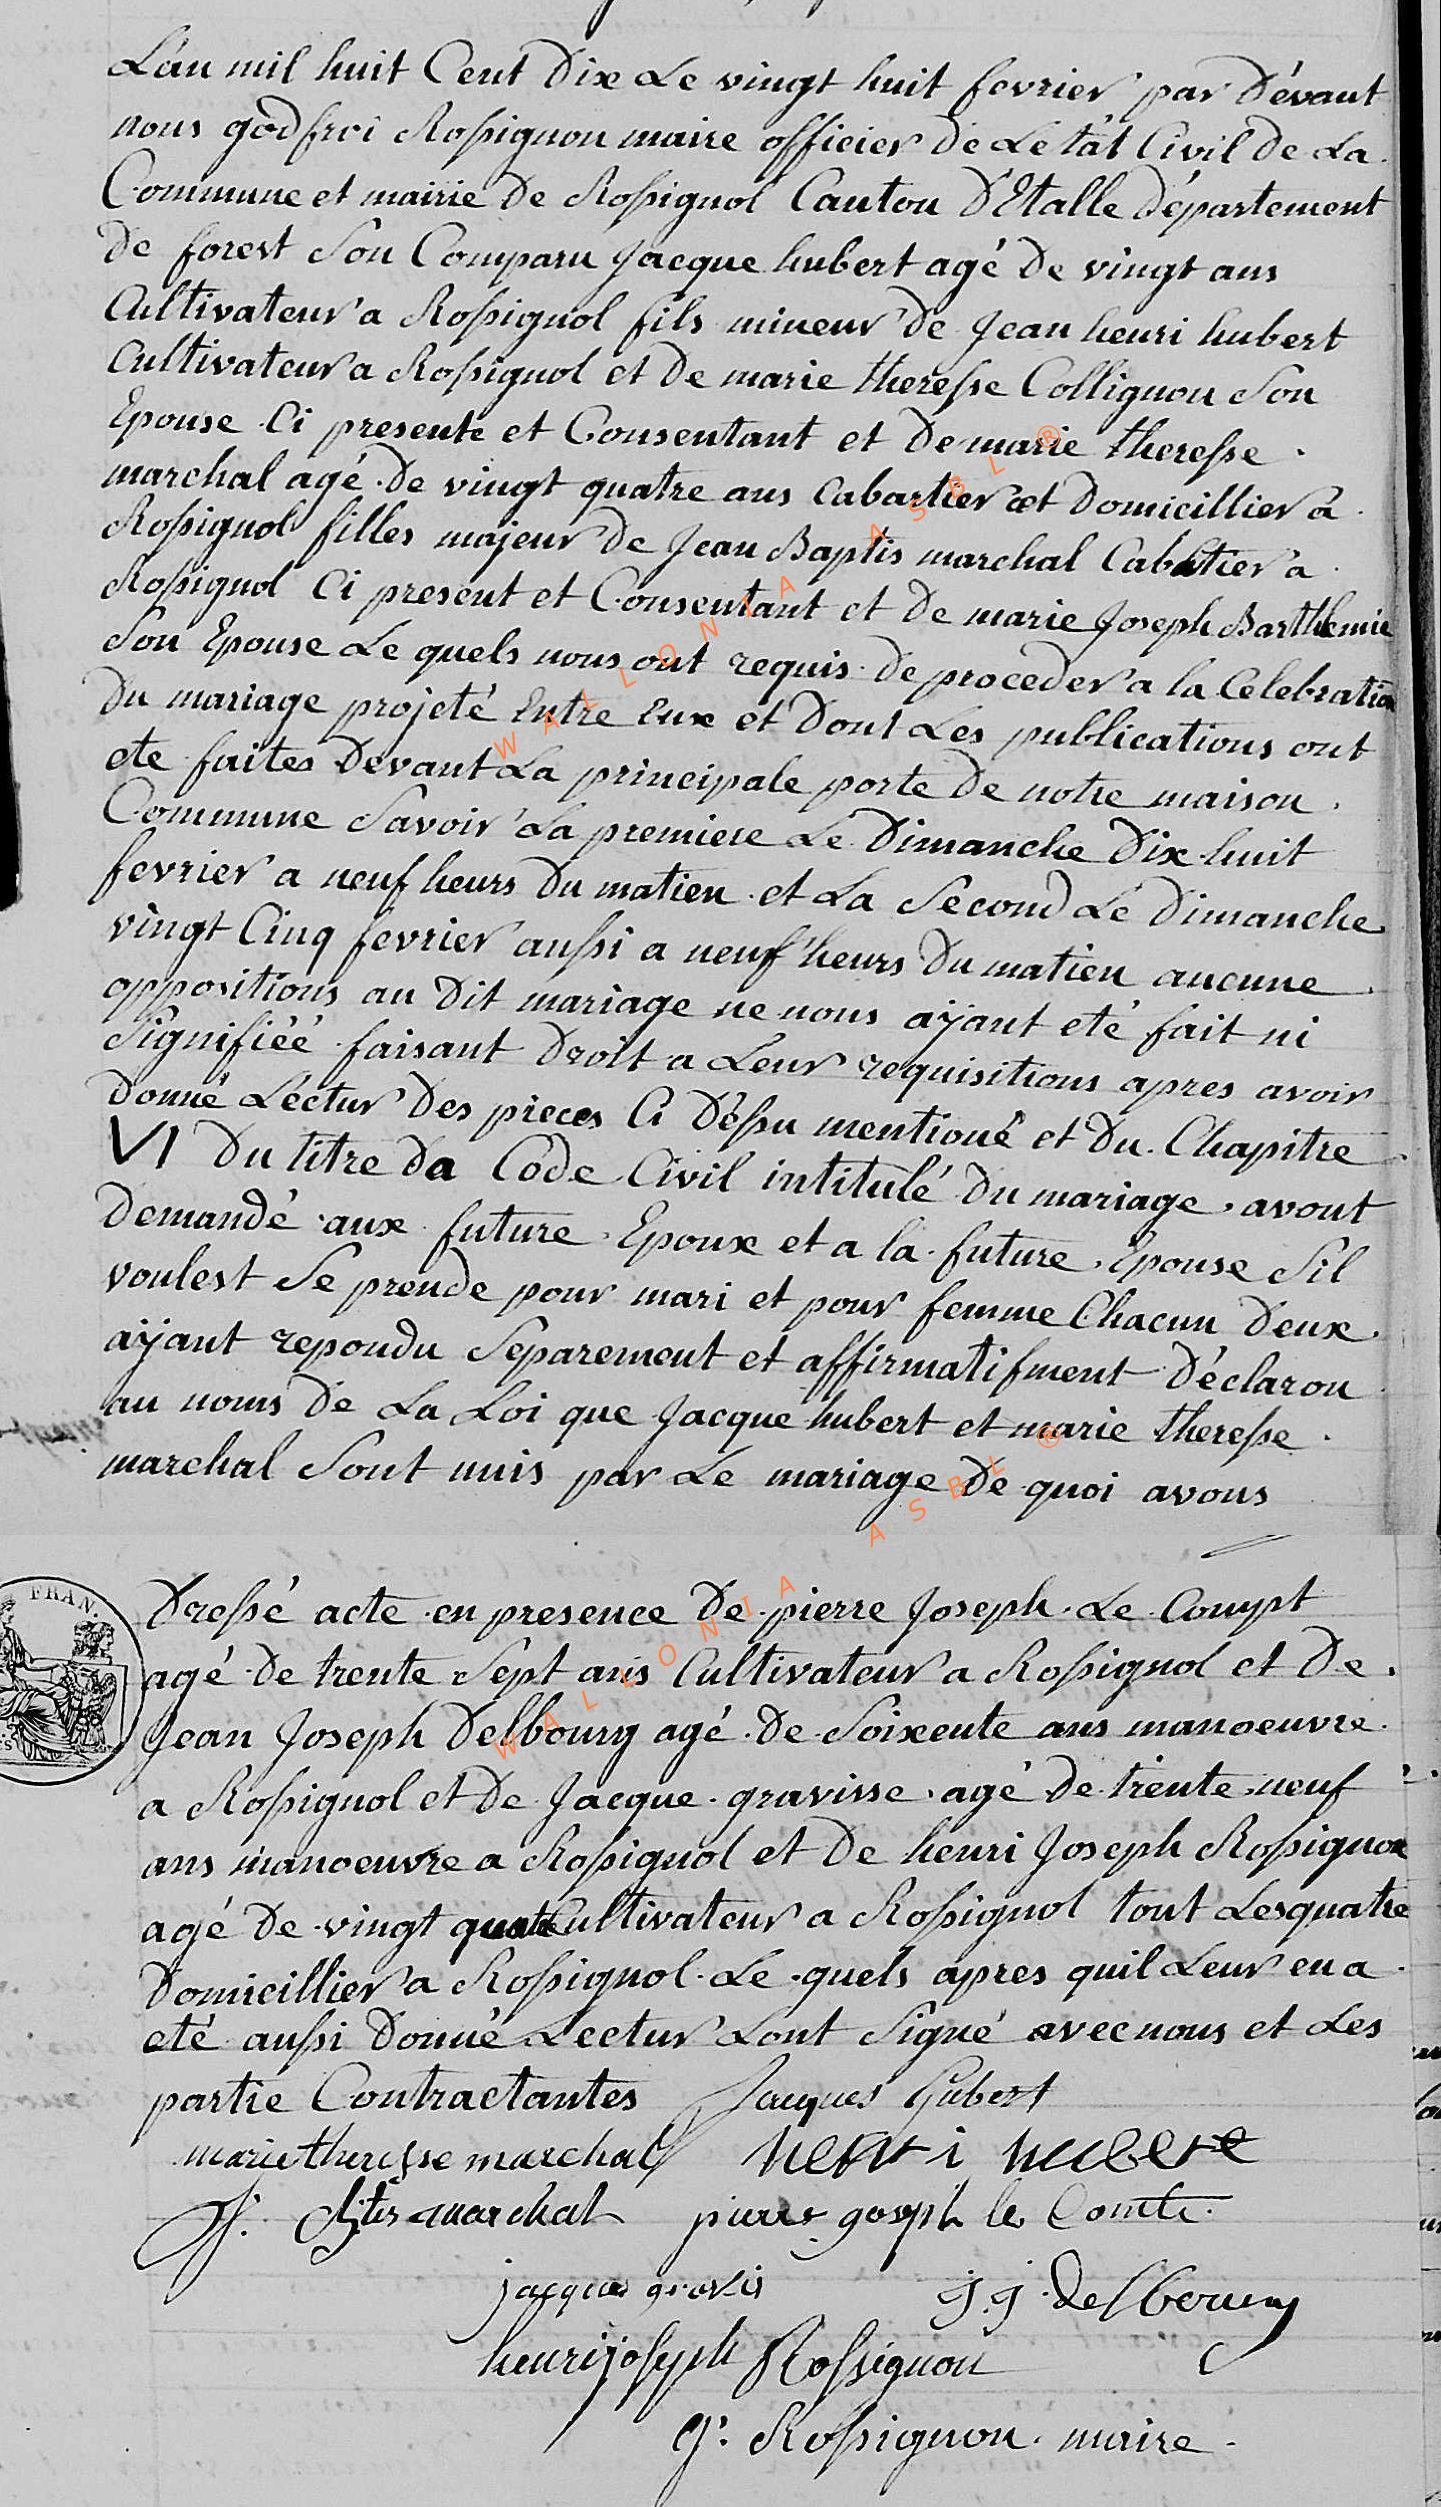 L'an mil huit Cent Dix Le vingt huit fevrier par Dévant
nous godfroi Rossignon maire officier De Letat Civil De La
Commune et mairie De Rossignol Canton D'Etalle Département
De forest Son Comparu Jacque hubert agé De vingt ans
Cultivateur a Rossignol fils mineur De Jean henri hubert
Cultivateur a Rossignol et De marie theresse Collignon Son
Epouse Ci presente et Consentant et De marie theresse
marchal agé De vingt quatre ans Cabartier et Domicillier a
Rossignol filles majeur De Jean Baptis marchal Cabartier a
Rossignol Ci present et Consentant et De marie Joseph Barthlemie
Son Epouse Le quels nous ont requis De proceder a la Celebration
Du mariage projeté Entre Eux et Dont Les publications ont
ete faites Devant La principale porte De notre maison
Commune Savoir La premiere Le Dimanche Dix huit
fevrier a neuf heurs Du matien et La Second Le Dimanche
vingt Cinq fevrier aussi a neuf heurs Du matien aucune
oppositions au Dit mariage ne nous aÿant eté fait ni
Signifiéé faisant Droit a Leur requisitions apres avoir
Donné Léctur Des pieces Ci Déssu mentioné et Du Chapitre
VI Du titre Da Code Civil intitulé Du mariage avont
Demandé aux future Epoux et a la future Epouse Sil
voulest Se prende pour mari et pour femme Chacun Deux
aÿant repondu Separement et affirmatifment Déclaron
au noms De La Loi que Jacque hubert et marie theresse
marchal Sont unis par Le mariage De quoi avons
Dressé acte en presence De pierre Joseph Le Compt
agé De trente Sept ans Cultivateur a Rossignol et De
Jean Joseph Delbourg agé De Soixente ans manoeuvre
a Rossignol et De Jacque gravisse agé De trente neuf
ans manoeuvre a Rossignol et De henri Joseph Rossignon
agé De vingt quatre Cultivateur a Rossignol tout Les quatre
Domicillier a Rossignol Le quels apres quil Leur en a
eté aussi Donné Lectur Lont Signé avec nous et Les
partie Contractantes Jacques Hubert
marie theresse marchal henri hubert
J. Bptis marchal pierre joseph le Comte
jacques gravis J. J. Delbourg
henri joseph Rossignon
G. Rossignon maire
FRAN.
WALLONIA ASBL ®
WALLONIA ASBL ®